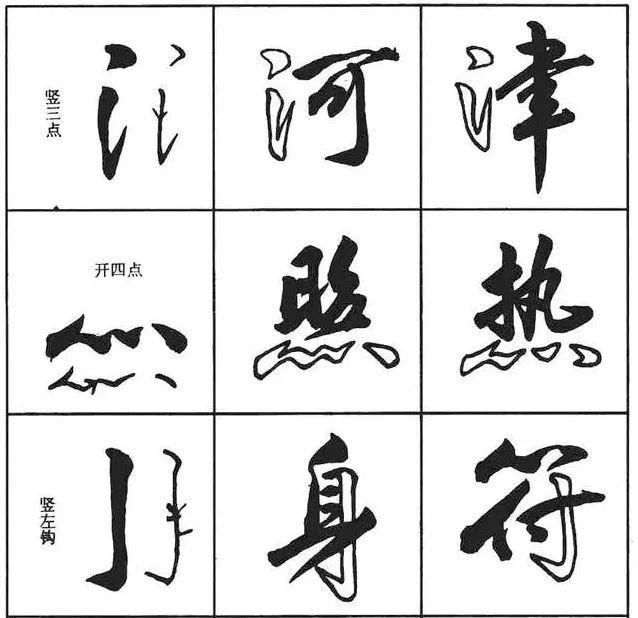 竖三点
河
津
开四点
照
热
竖左钩
身
符